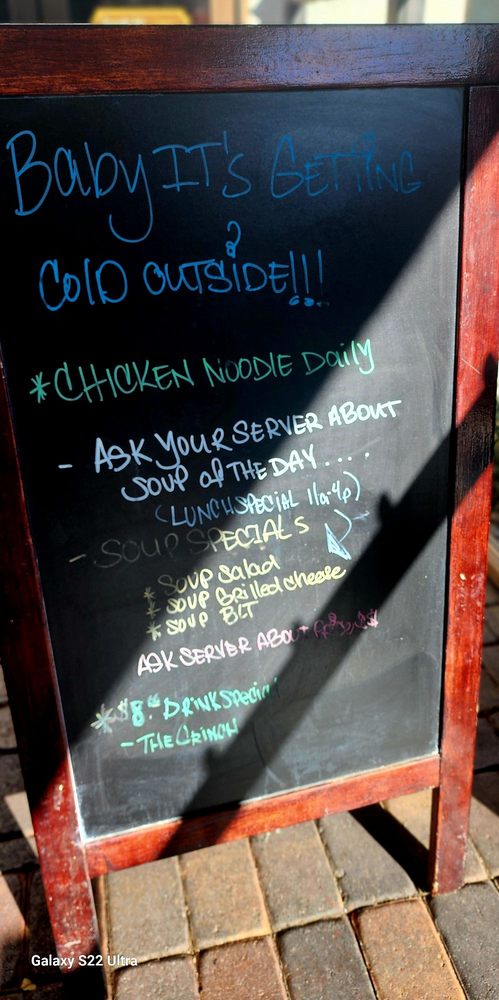 Baby IT's GETTING
COLD OUTSIDE!!!
* CHICKEN NOODLE Daily
- ASK YOUR SERVER ABOUT
SOUP of THE DAY....
(LUNCH SPECIAL 11a-4p)
- SOUP SPECIALS
* SOUP Salad
* SOUP Grilled cheese
* SOUP BLT
ASK SERVER ABOUT
* $8.00 DRINK Special
- THE GRINCH
Galaxy S22 Ultra